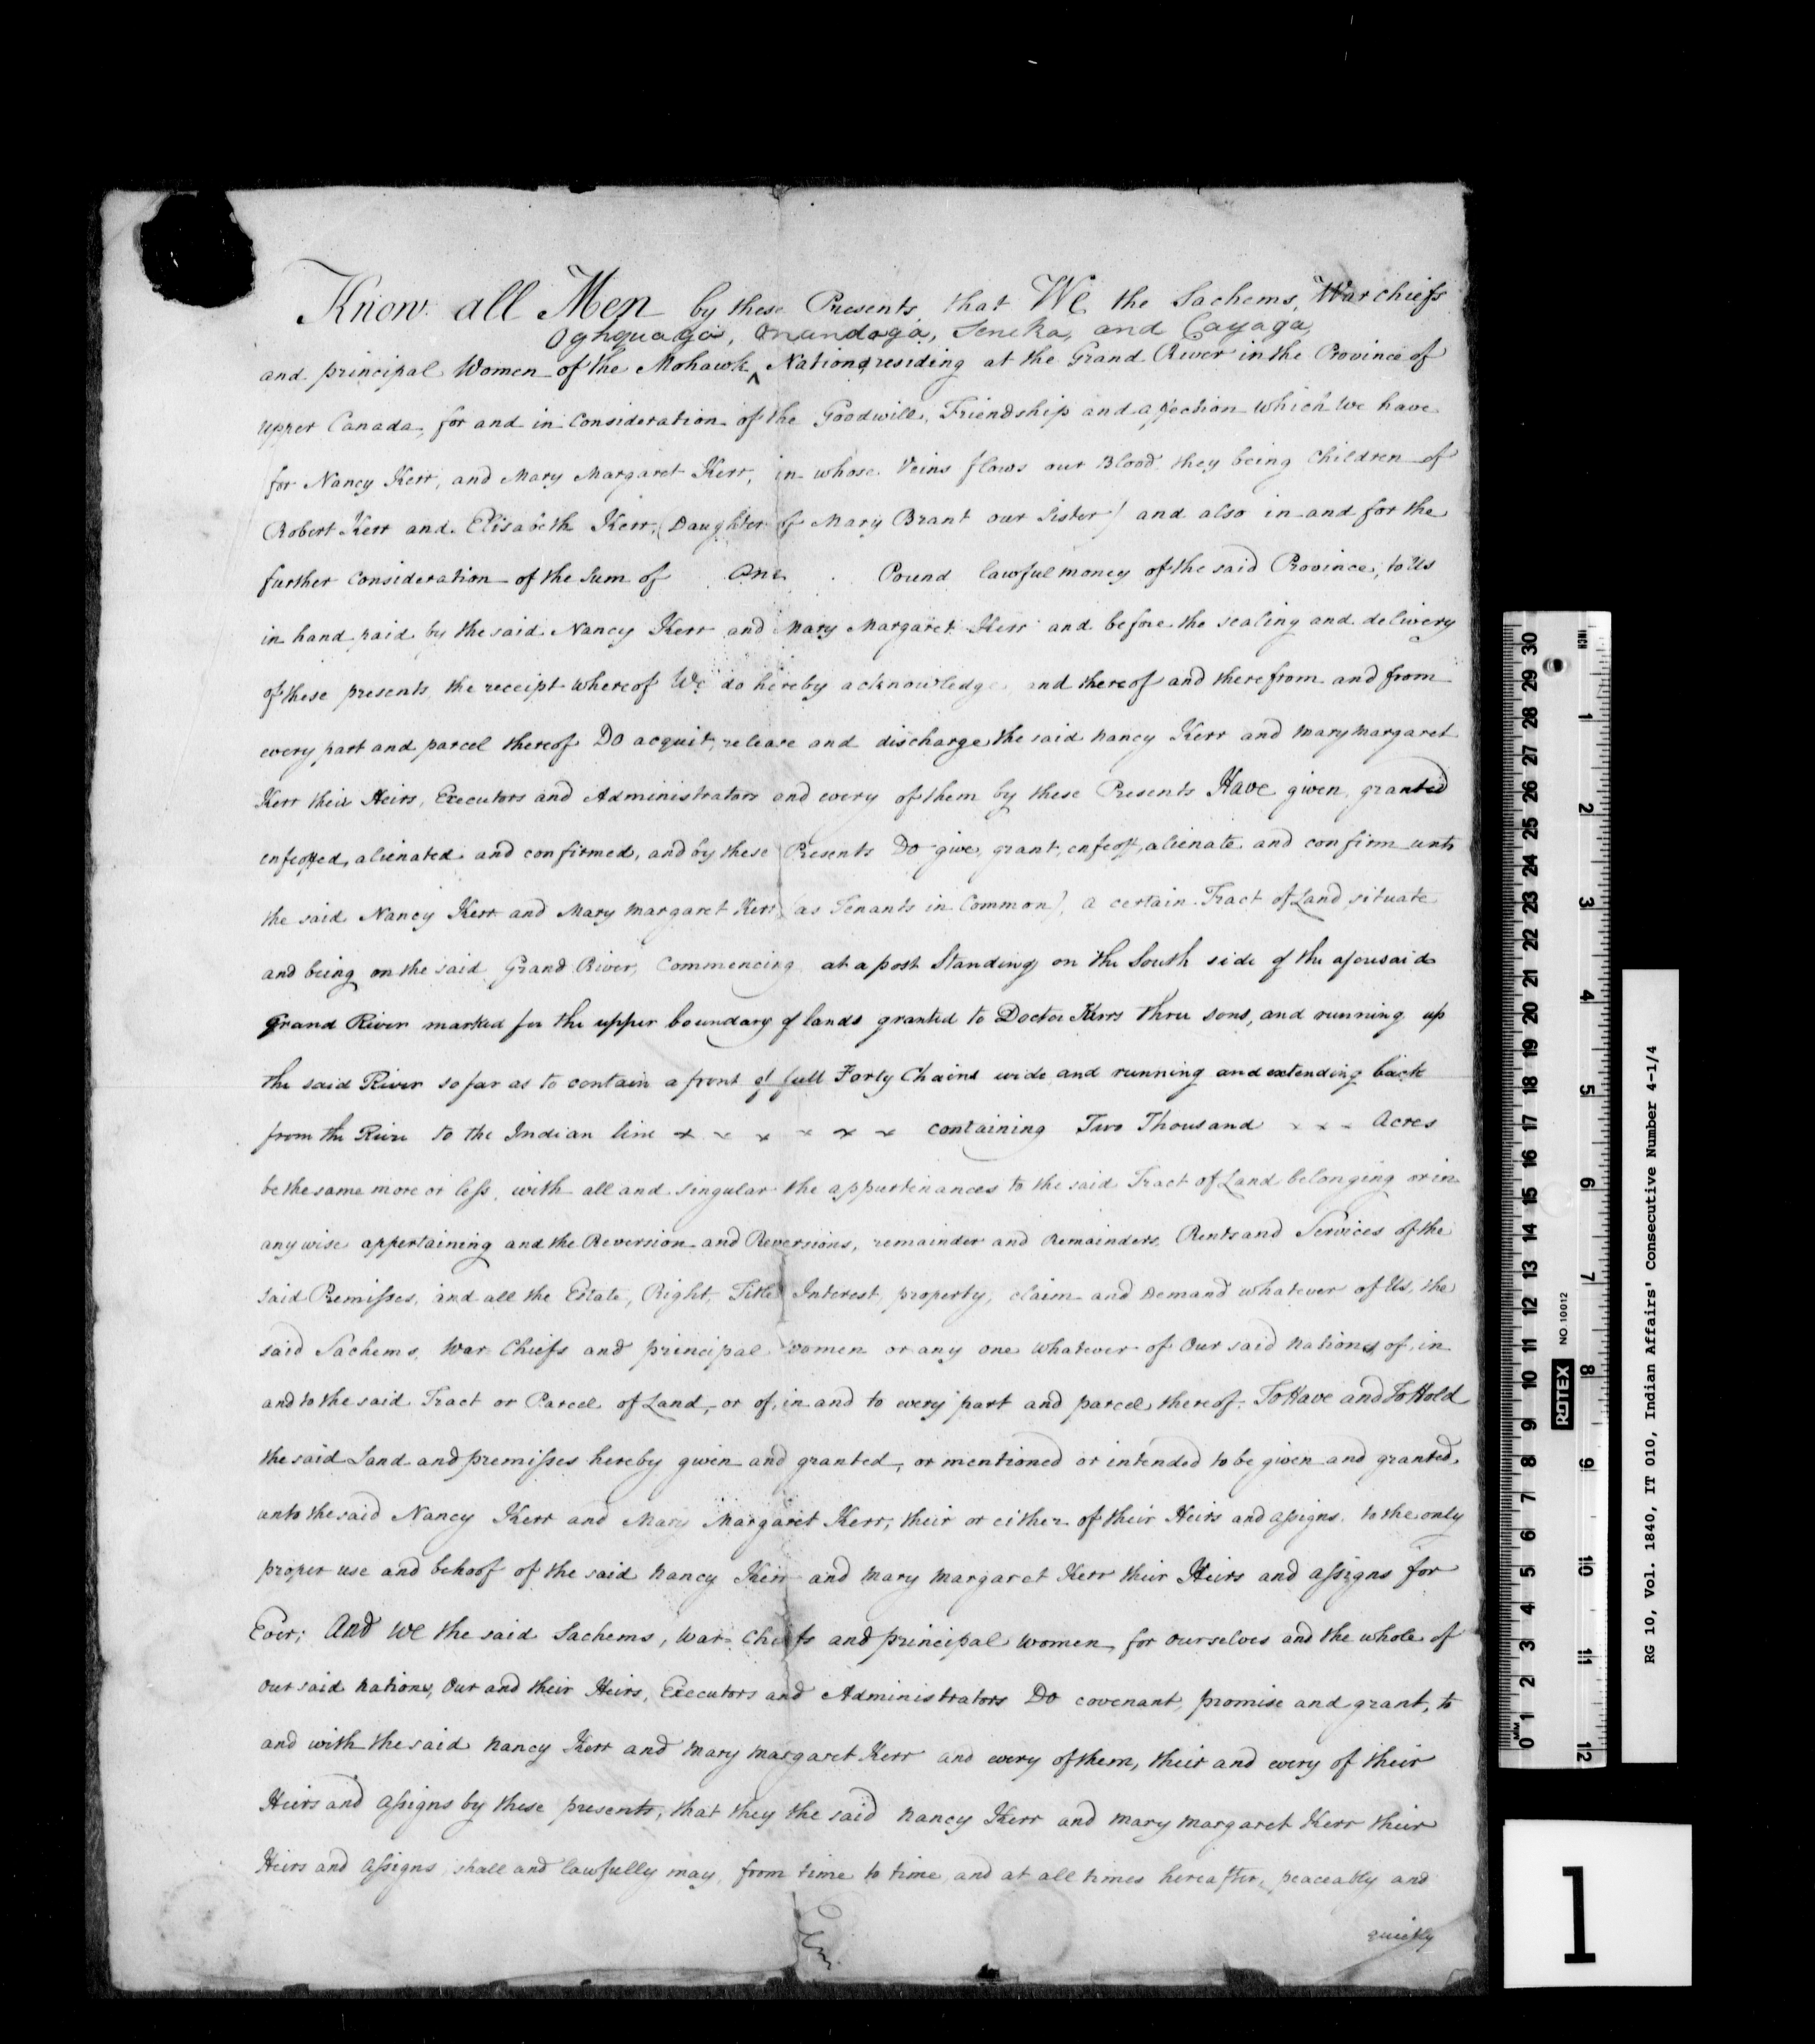 Know all Men by these Presents, that We the Sachems, War chiefs
Oghquaga, Onandaga, Seneka, and Cayaga,
and principal Women of the Mohawk ^ Nations residing at the Grand River in the Province of
upper Canada, for and in Consideration of the Goodwill, Friendship and affection which We have
for Nancy Kerr, and Mary Margaret Kerr, in whose Veins flows our Blood, they being Children of
Robert Kerr and Elisabeth Kerr, (Daughter of Mary Brant our Sister) and also in and for the
further Consideration of the Sum of One Pound lawful money of the said Province, to Us
in hand paid by the said Nancy Kerr and Mary Margaret Kerr and before the sealing and delivery
of these presents, the receipt whereof We do hereby acknowledge, and thereof and therefrom and from
every part and parcel thereof Do acquit, release and discharge the said Nancy Kerr and Mary Margaret
Kerr their Heirs, Executors and Administrators and every of them by these Presents Have given, granted
enfeoffed, alienated and confirmed, and by these Presents Do give, grant, enfeoff, alienate and confirm unto
the said Nancy Kerr and Mary Margaret Kerr (as Tenants in Common), a certain Tract of Land, situate
and being on the said Grand River, Commencing at a post Standing on the South side of the aforesaid
Grand River marked for the upper boundary of lands granted to Doctor Kerrs three sons, and running up
the said River so far as to contain a front of full Forty Chains wide and running and extending back
from the River to the Indian line x x x x x x containing Two Thousand x x x Acres
be the same more or less, with all and singular the appurtinances to the said Tract of Land belonging or in
any wise appertaining and the Reversion and Reversions, remainder and Remainders, Rents and Services of the
said Premisses, and all the Estate, Right, Title Interest, property, claim and Demand whatever of Us, the
said Sachems, War Chiefs and principal Women or any one whatever of Our said Nations of, in
and to the said Tract or Parcel of Land, or of, in and to every part and parcel thereof. To Have and To Hold
the said Land and premisses hereby given and granted, or mentioned or intended to be given and granted,
unto the said Nancy Kerr and Mary Margaret Kerr, their or either of their Heirs and assigns, to the only
proper use and behoof of the said Nancy Kerr and Mary Margaret Kerr their Heirs and assigns for
Ever; And We the said Sachems, War Chiefs and principal Women, for ourselves and the whole of
our said Nations, Our and their Heirs, Executors and Administrators Do covenant, promise and grant, to
and with the said Nancy Kerr and Mary Margaret Kerr and every of them, their and every of their
Heirs and assigns by these presents, that they the said Nancy Kerr and Mary Margaret Kerr their
Heirs and assigns, shall and lawfully may, from time to time, and at all times hereafter, peaceably and
quietly
RG 10, Vol. 1840, IT 010, Indian Affairs' Consecutive Number 4-1/4
INCH
1 2 3 4 5 6 7 8 9 10 11 12
30 29 28 27 26 25 24 23 22 21 20 19 18 17 16 15 14 13 12 11 10 9 8 7 6 5 4 3 2 1 0
ROTEX NO.10012
1